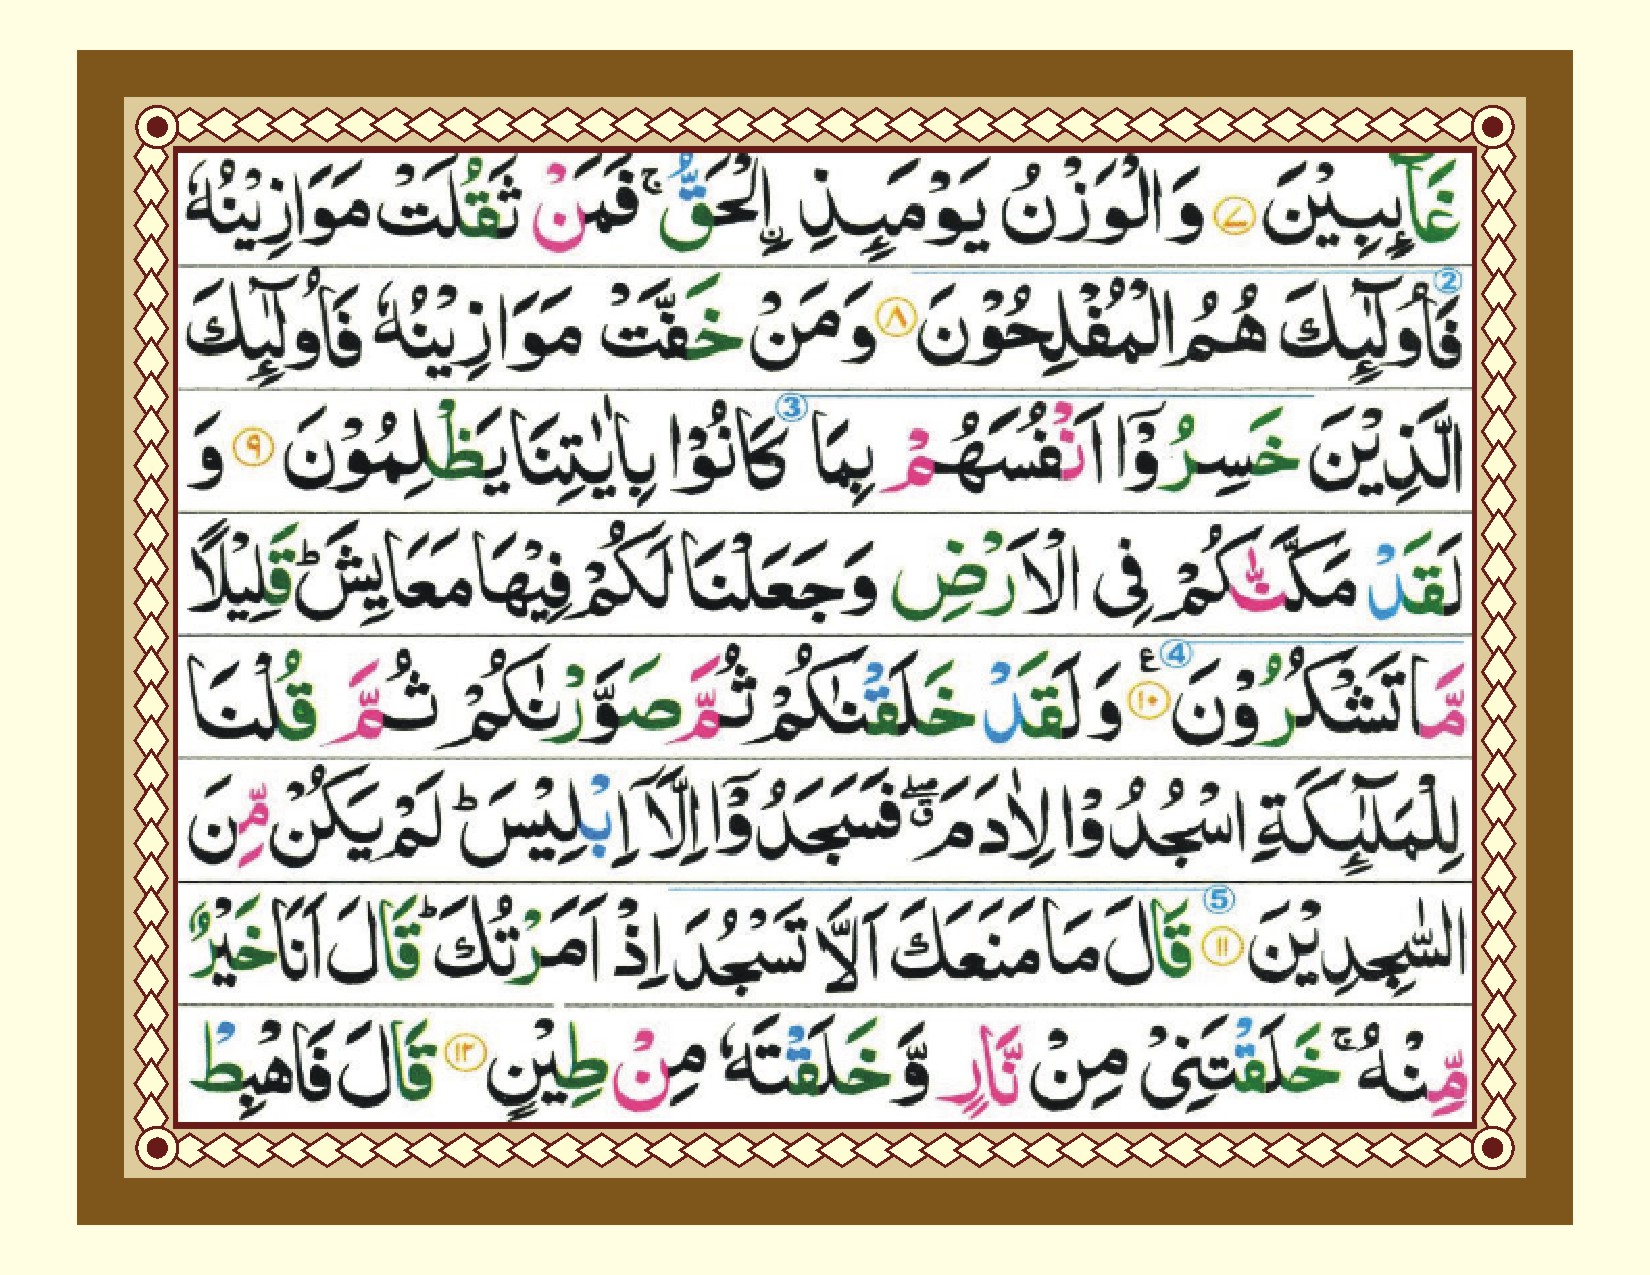 غَآئِبِيْنَ ﴿۷﴾ وَالْوَزْنُ يَوْمَئِذِ ِۨالْحَقُّ ۚ فَمَنْ ثَقُلَتْ مَوَازِيْنُهٗ
② فَاُولٰٓئِكَ هُمُ الْمُفْلِحُوْنَ ﴿۸﴾ وَمَنْ خَفَّتْ مَوَازِيْنُهٗ فَاُولٰٓئِكَ
الَّذِيْنَ خَسِرُوْٓا اَنْفُسَهُمْ بِمَا ③ كَانُوْا بِاٰيٰتِنَا يَظْلِمُوْنَ ﴿۹﴾ وَ
لَقَدْ مَكَّنّٰكُمْ فِى الْاَرْضِ وَجَعَلْنَا لَكُمْ فِيْهَا مَعَايِشَ ؕ قَلِيْلًا
مَّا تَشْكُرُوْنَ ④ ع ﴿۱۰﴾ وَلَقَدْ خَلَقْنٰكُمْ ثُمَّ صَوَّرْنٰكُمْ ثُمَّ قُلْنَا
لِلْمَلٰٓئِكَةِ اسْجُدُوْا لِاٰدَمَ ۖق فَسَجَدُوْٓا اِلَّآ اِبْلِيْسَ ؕ لَمْ يَكُنْ مِّنَ
السّٰجِدِيْنَ ⑤ ﴿۱۱﴾ قَالَ مَا مَنَعَكَ اَلَّا تَسْجُدَ اِذْ اَمَرْتُكَ ؕ قَالَ اَنَا خَيْرٌ
مِّنْهُ ۚ خَلَقْتَنِىْ مِنْ نَّارٍ وَّخَلَقْتَهٗ مِنْ طِيْنٍ ﴿۱۲﴾ قَالَ فَاهْبِطْ